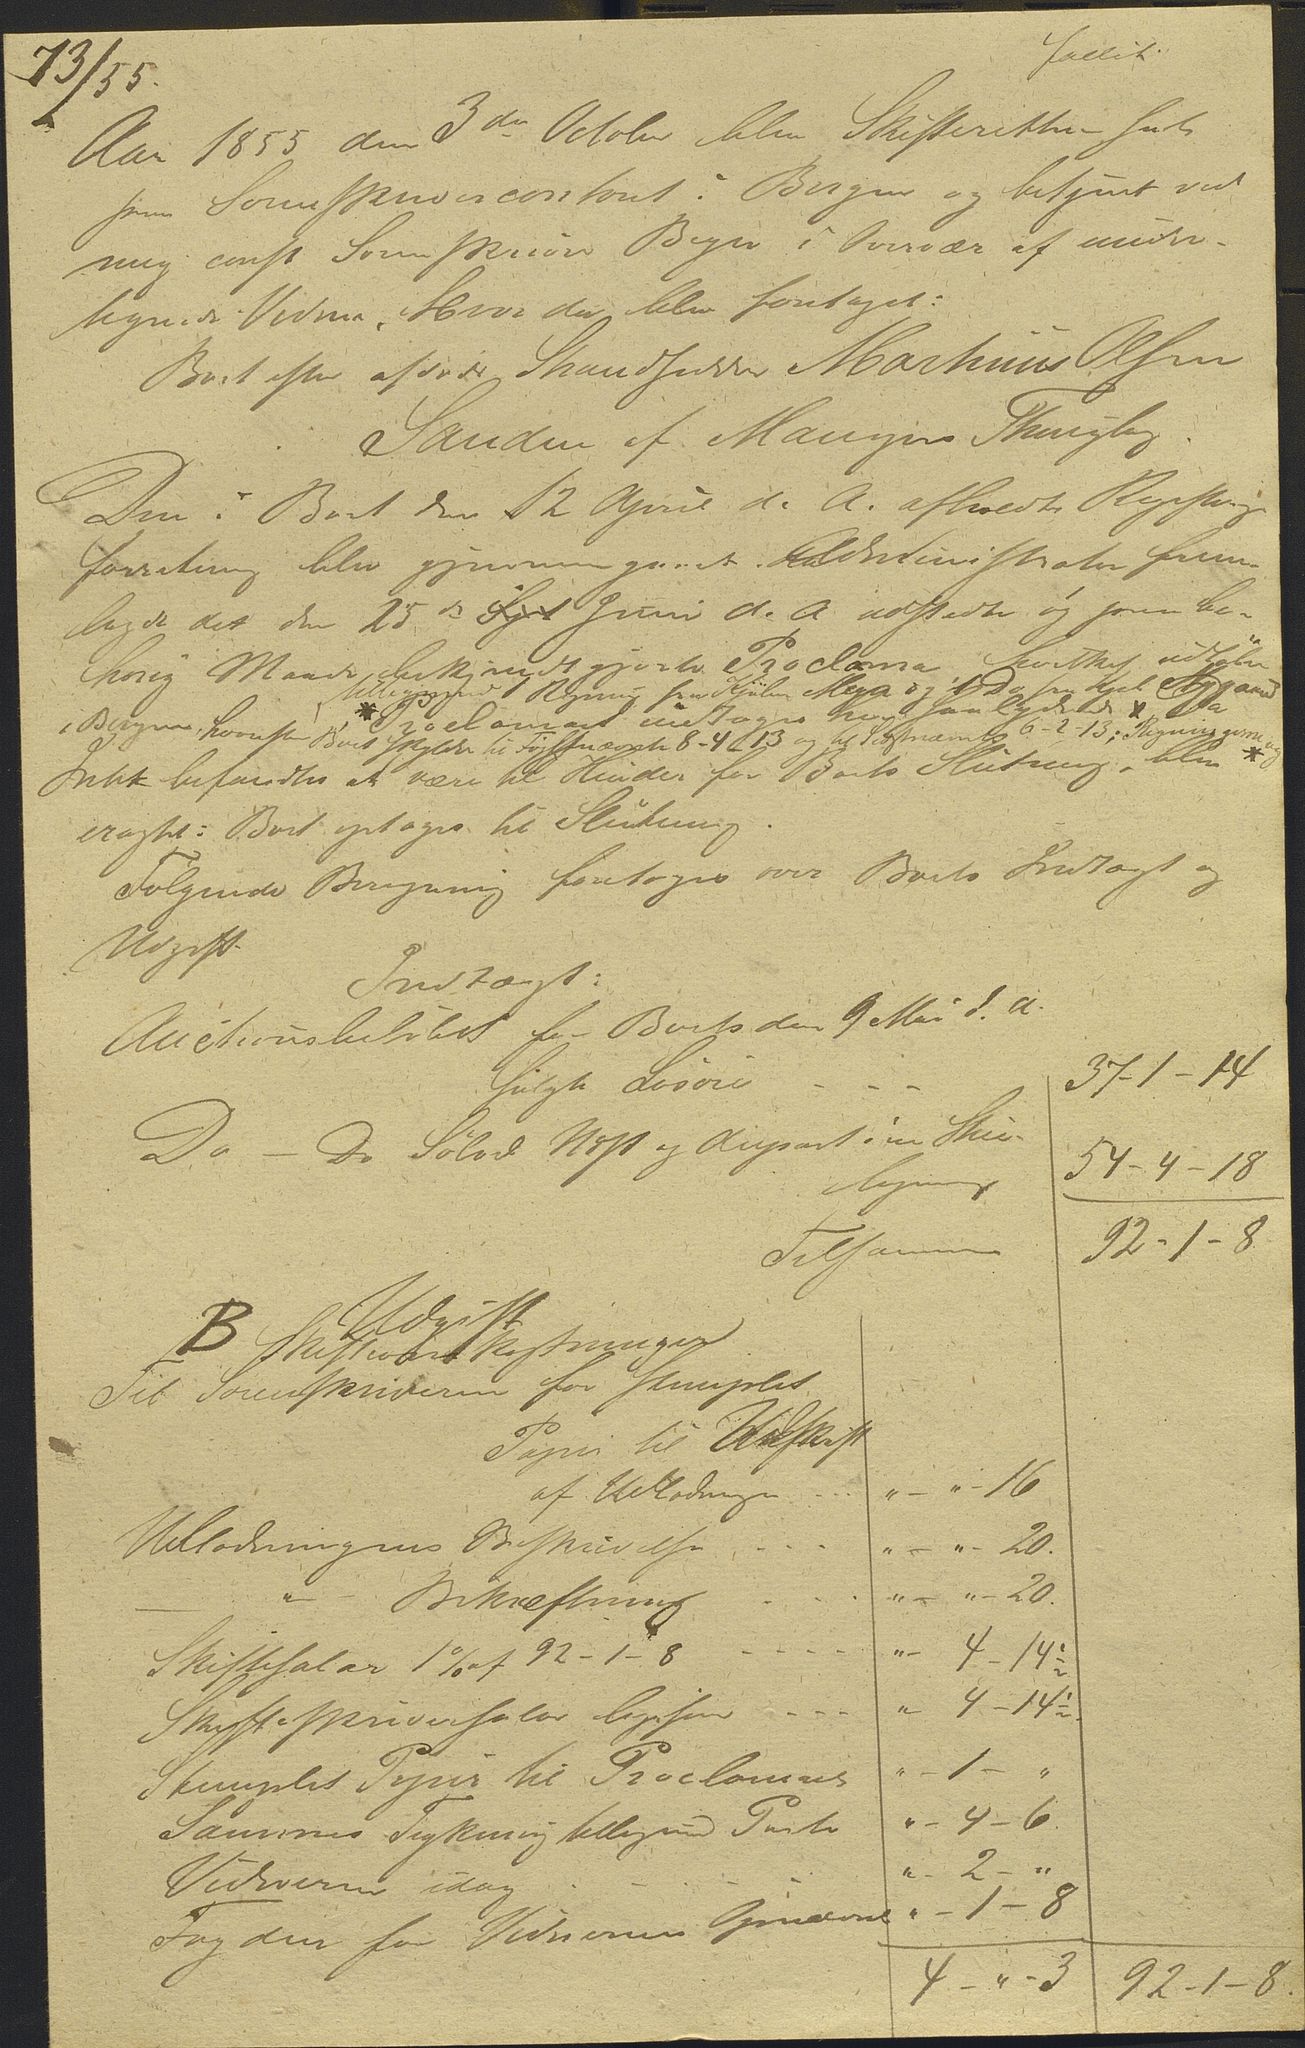 73/55.
fallit
Aar 1855 den 3die October blev Skifteretten sat
paa Sorenskrivercontoiret i Bergen og betjent ved
mig const Sorenskriver Beyer i Overvær af under-
tegnede Vidner, Hvor da blev foretaget:
Boet efter afdøde Strandsidder Marthinus Olsen
Sanden af Mangers Thinglag.
Den i Boet den 12 April d. A. afholdte Registrerings
forretning blev gjennemgaaet. Administrator frem-
lagde det den 25de Juni d. A udstedte og paa be-
hørig Maade bekjendtgjorte Proclama hvilket
tilligemed 1 Regning fra
i Bergen, hvorefter Boet skylder til Førstnævnte 8-4-13 og til Sidstnævnte 6-2-13; Regningerne og
* Proclamaet indtages her saalydende * Da
Intet befandtes at være til Hinder for Boets Slutning, blev *
eragtet: Boet optages til Slutning.
Følgende Beregning foretages over Boets Indtægt og
Udgift
Indtægt:
Auctionsbeløbet for Boets den 9 Mai d. A.
solgte Løsøre - - - 37-1-14
Do - Do Solgt
54-4-18
Tilsammen 92-1-8
B Udgift
Skifteomkostninger
Til Sorenskriveren for stemplet
Papir til Udskrift
af Udlodningen ... " - " - 16
Udlodningens Beskrivelse - - - " - " - 20.
— " — Bekræftning . . . " - " - 20.
Skiftesalær 1% af 92-1-8 - - - - " - 4 - 14½
Skifteskriversalær ligesaa - - - " 4 - 14½
Stemplet Papir til Proclamaet " - 1 - "
Sammes Trykning tilligemed Porto " - 4 - 6.
Vidnerne idag . - . - . - " - 2 - "
Fogden for Vidnernes " - 1 - 8
4 - " - 3 92-1-8.